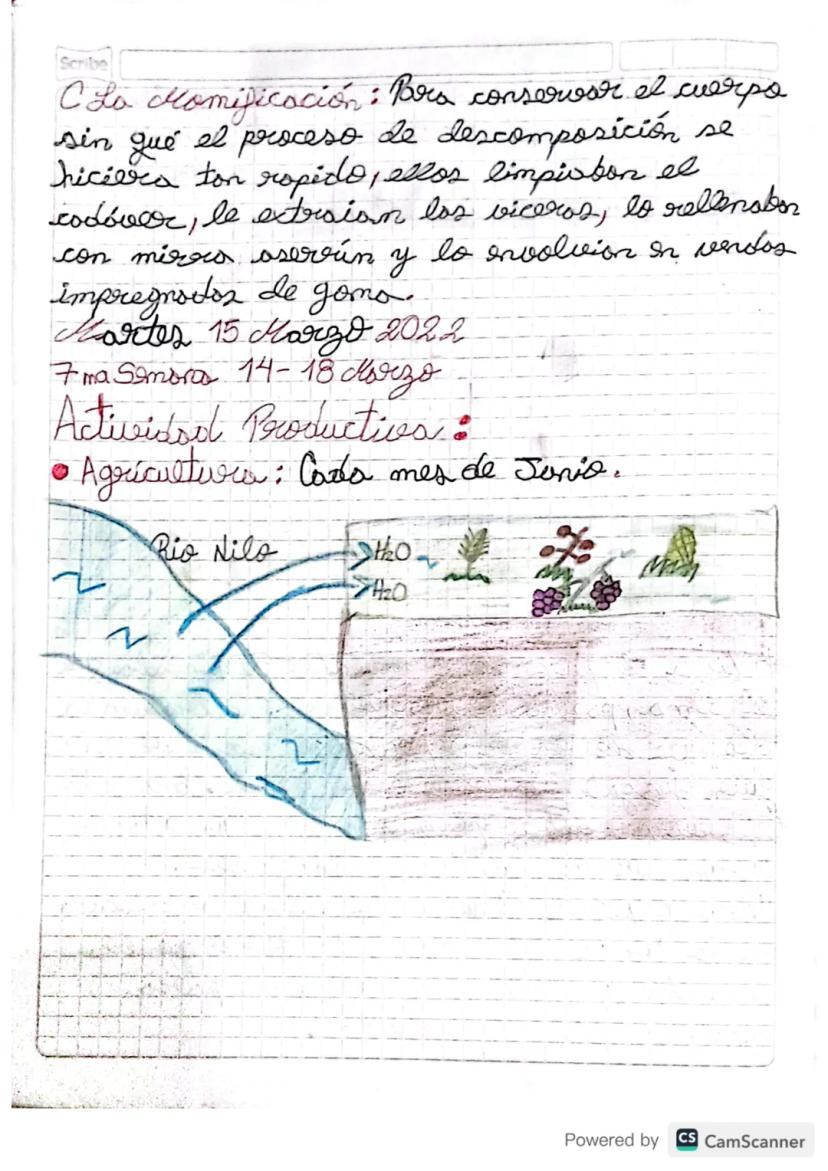 Scribe
C La Momificación: Para conservar el cuerpo
sin qué el proceso de descomposición se
hiciera tan rapido, ellos limpiaban el
cadáver, le extraian las viceras, lo rellenaban
con mirra aserrín y lo envolvian en vendas
impregnadas de goma.
Martes 15 Marzo 2022
7ma Semana 14-18 Marzo
Actividad Productiva:
• Agricultura: Cada mes de Junio.
Rio Nilo
H2O
H2O
Powered by CS CamScanner